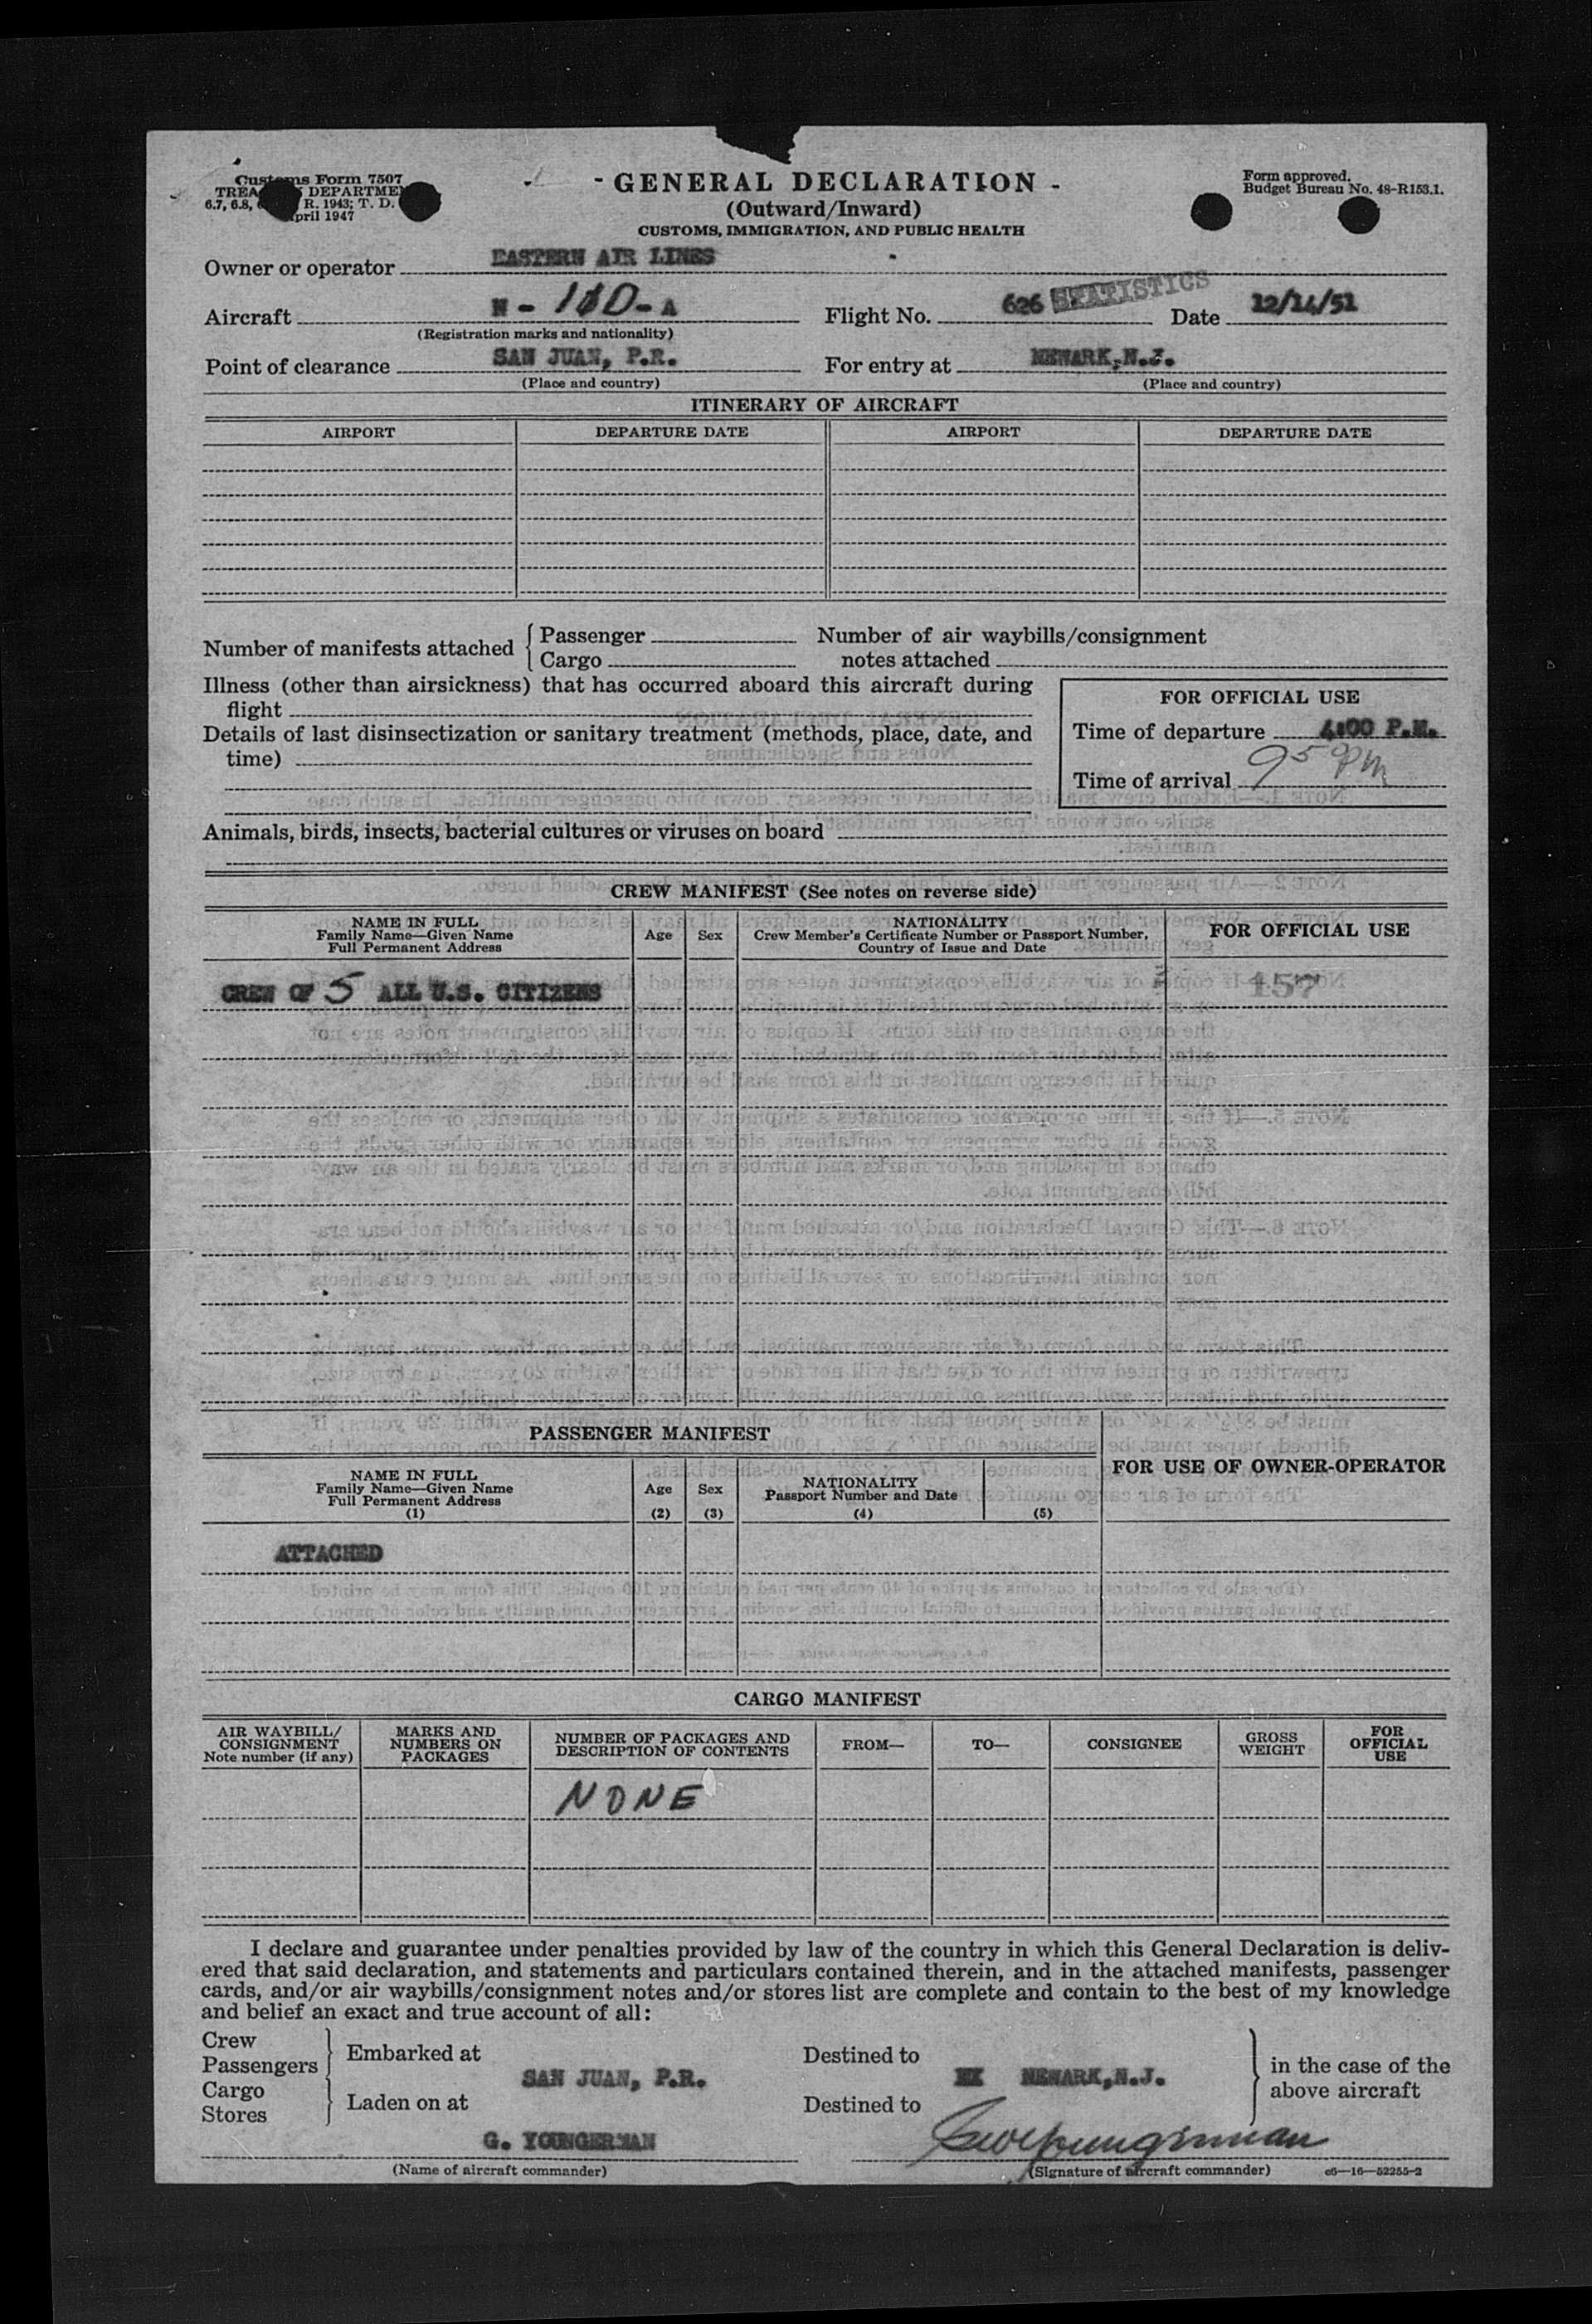 Customs Form 7507
TREA DEPARTME
6.7, 6.8, R. 1943; T. D.
pril 1947
- GENERAL DECLARATION -
(Outward/Inward)
CUSTOMS, IMMIGRATION, AND PUBLIC HEALTH
Form approved.
Budget Bureau No. 48-R153.1.
Owner or operator EASTERN AIR LINES
Aircraft N - 1 D - A Flight No. 626 STATISTICS Date 12/14/51
(Registration marks and nationality)
Point of clearance SAN JUAN, P.R. For entry at NEWARK, N.J.
(Place and country) (Place and country)
ITINERARY OF AIRCRAFT
AIRPORT DEPARTURE DATE AIRPORT DEPARTURE DATE
Number of manifests attached { Passenger Number of air waybills/consignment
Cargo notes attached
Illness (other than airsickness) that has occurred aboard this aircraft during
flight
Details of last disinsectization or sanitary treatment (methods, place, date, and
time)
FOR OFFICIAL USE
Time of departure 4:00 P.M.
Time of arrival 9 5 PM
Animals, birds, insects, bacterial cultures or viruses on board
CREW MANIFEST (See notes on reverse side)
NAME IN FULL
Family Name—Given Name
Full Permanent Address
Age
Sex
NATIONALITY
Crew Member's Certificate Number or Passport Number,
Country of Issue and Date
FOR OFFICIAL USE
CREW OF 5 ALL U.S. CITIZENS 157
PASSENGER MANIFEST
NAME IN FULL
Family Name—Given Name
Full Permanent Address
(1)
Age
(2)
Sex
(3)
NATIONALITY
Passport Number and Date
(4) (5)
FOR USE OF OWNER-OPERATOR
ATTACHED
CARGO MANIFEST
AIR WAYBILL/
CONSIGNMENT
Note number (if any)
MARKS AND
NUMBERS ON
PACKAGES
NUMBER OF PACKAGES AND
DESCRIPTION OF CONTENTS
FROM—
TO—
CONSIGNEE
GROSS
WEIGHT
FOR
OFFICIAL
USE
NONE
I declare and guarantee under penalties provided by law of the country in which this General Declaration is deliv-
ered that said declaration, and statements and particulars contained therein, and in the attached manifests, passenger
cards, and/or air waybills/consignment notes and/or stores list are complete and contain to the best of my knowledge
and belief an exact and true account of all:
Crew
Passengers } Embarked at
Cargo
Stores } Laden on at
SAN JUAN, P.R.
Destined to
NEWARK, N.J.
Destined to
} in the case of the
above aircraft
G. YOUNGERMAN
(Name of aircraft commander) (Signature of aircraft commander) c6—16—52255-2